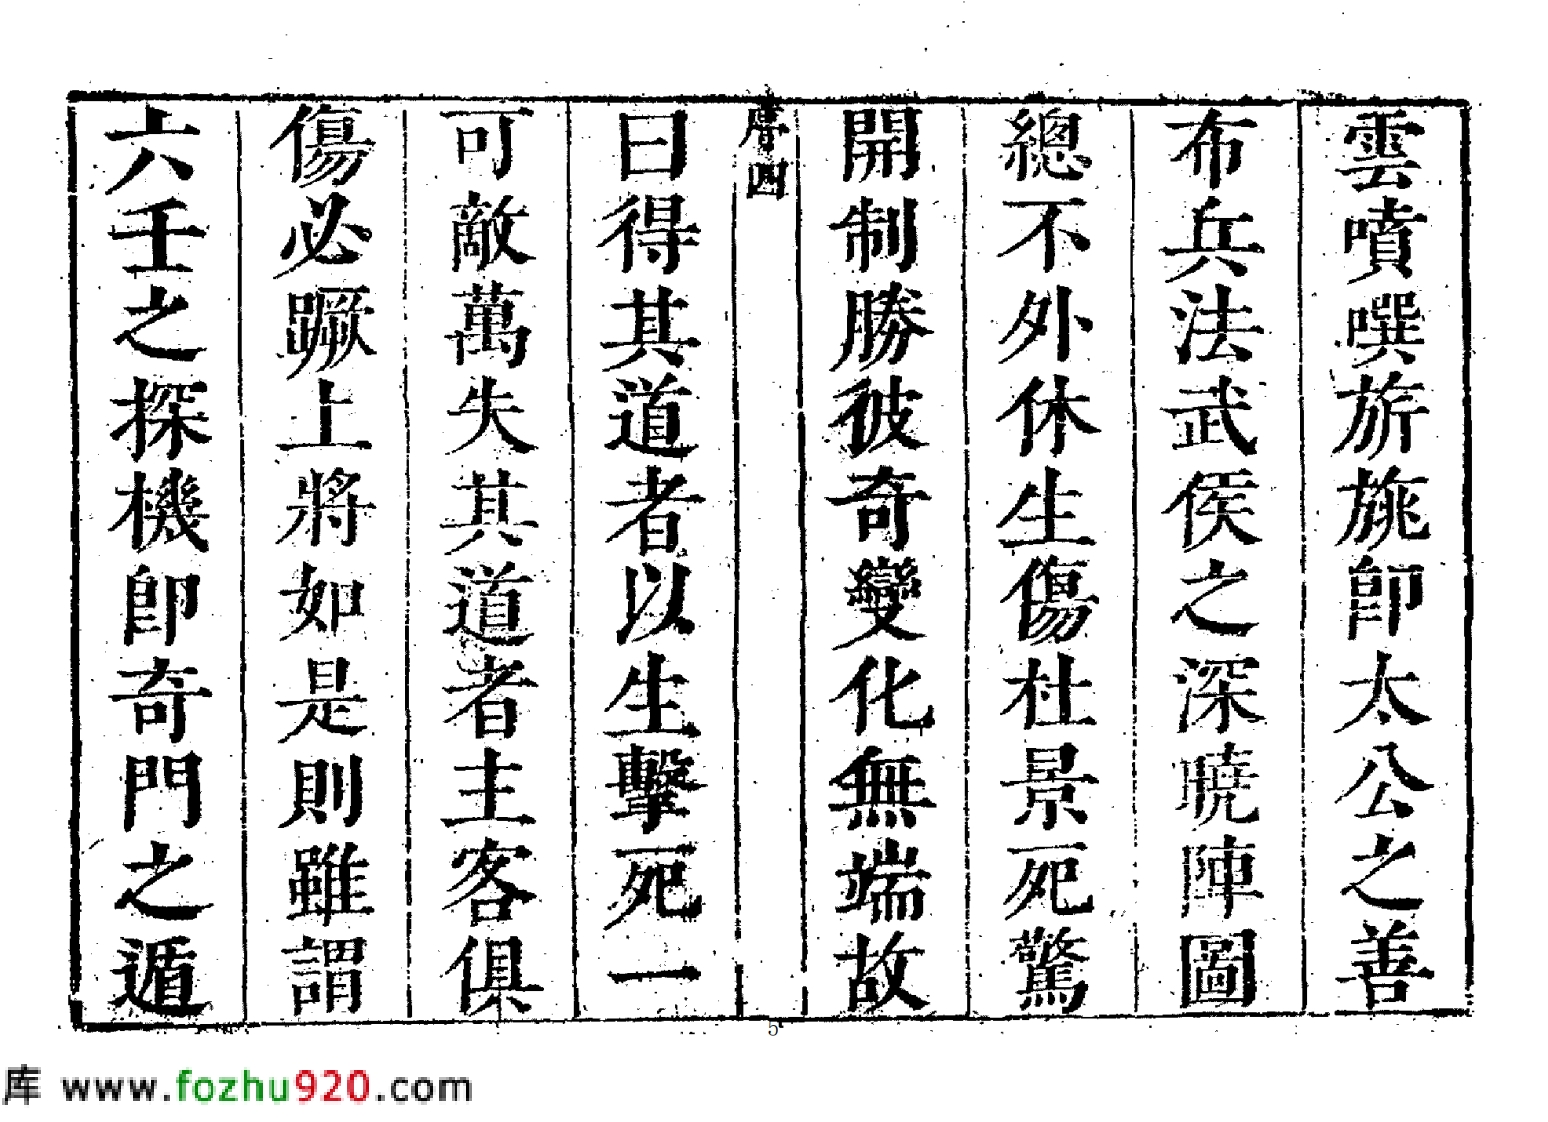 雲噴噀旂旐卽太公之善
布兵法武侯之深曉陣圖
總不外休生傷杜景死驚
開制勝彼奇變化無端故
序四
曰得其道者以生擊死一
可敵萬失其道者主客俱
傷必蹶上將如是則雖謂
六壬之探機卽奇門之遁
5
库 www.fozhu920.com